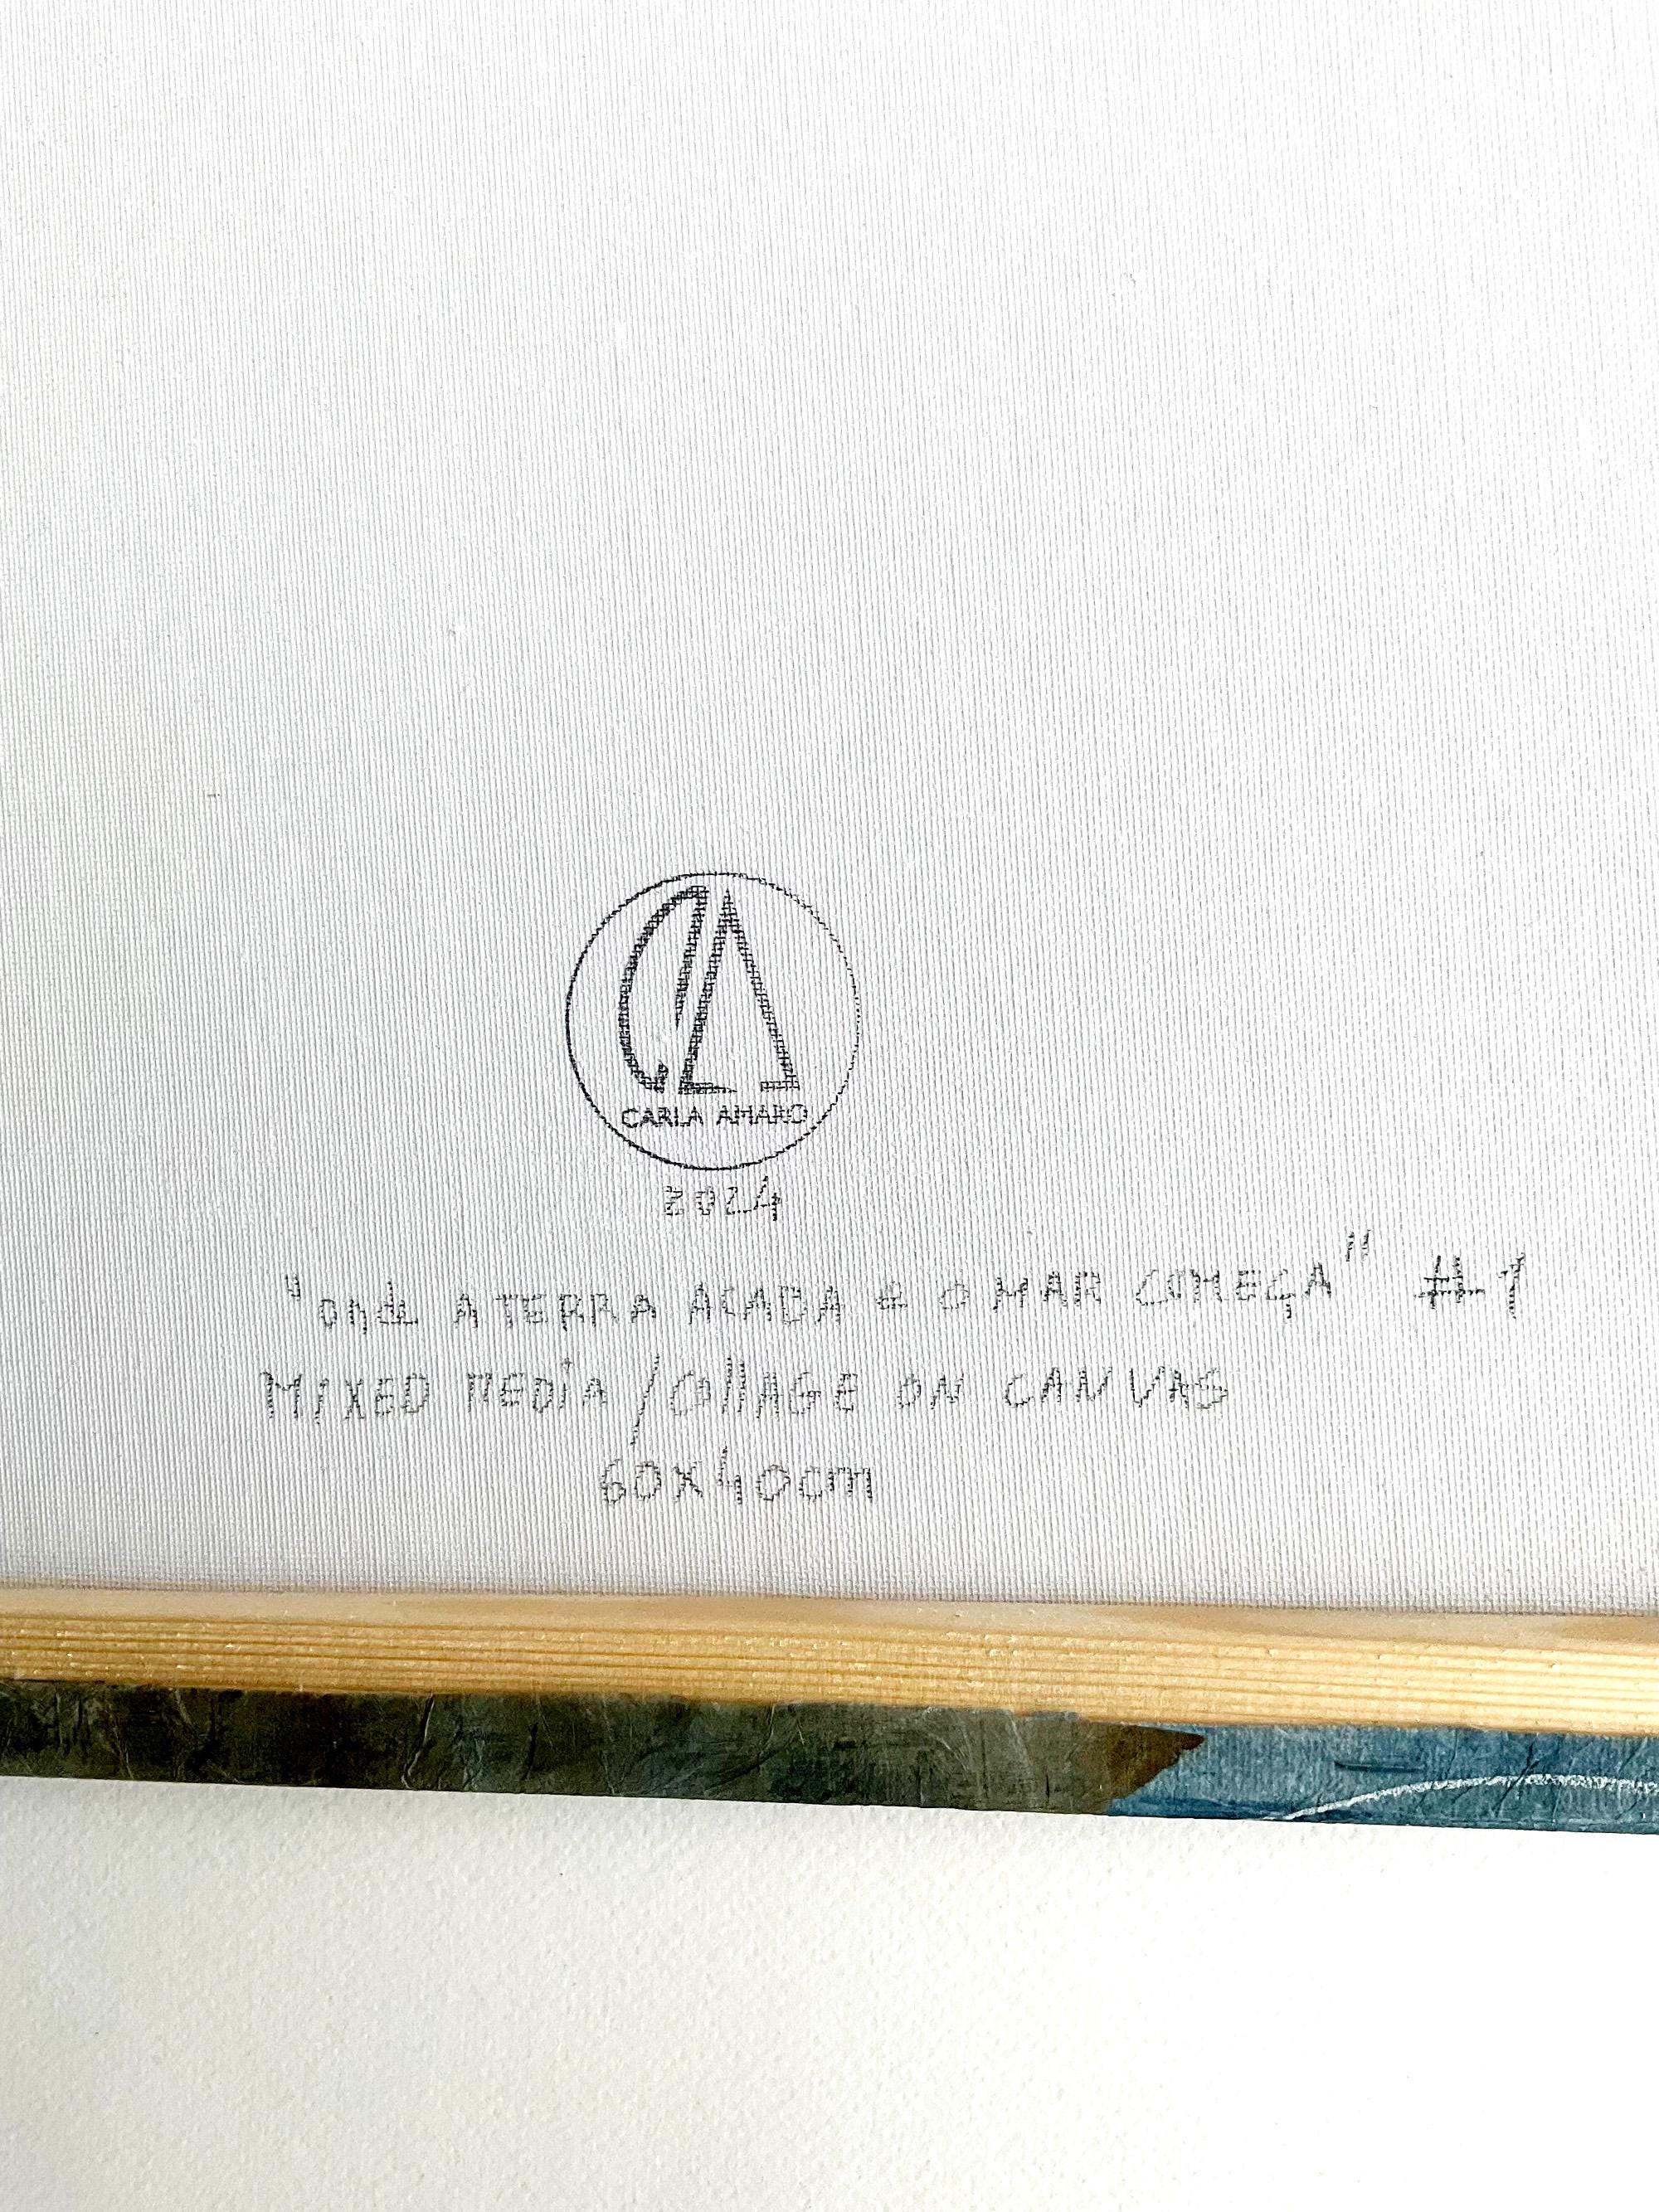 CA
CARLA AMARO
2024
"onde A TERRA ACABA E O MAR COMEÇA" #1
MIXED MEDiA/COllAGE ON CANVAS
60x40cm